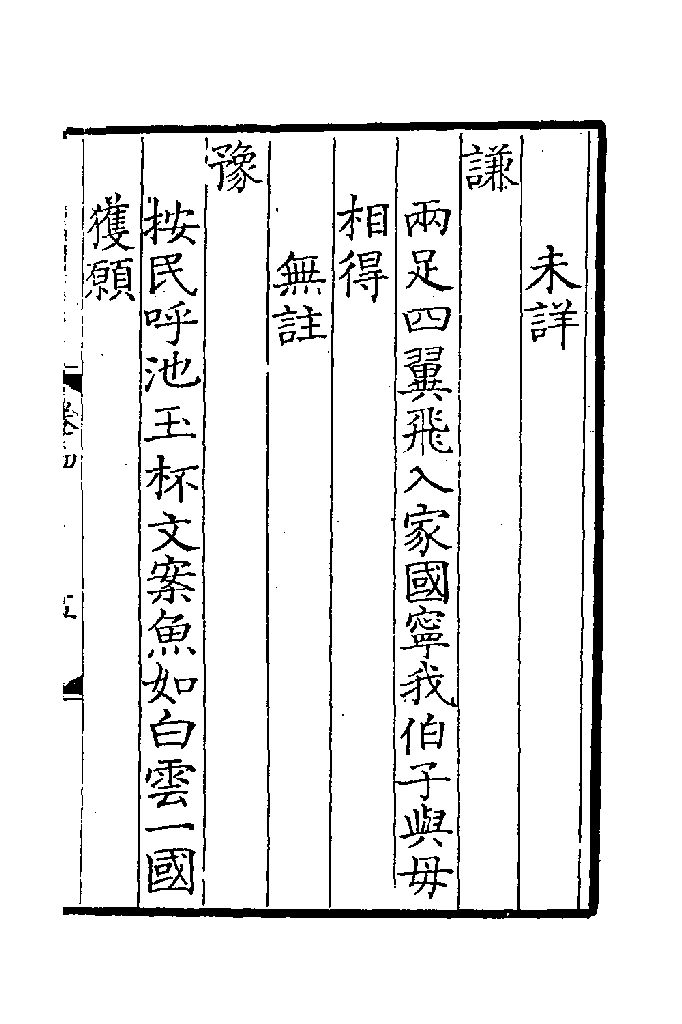 未詳
謙
兩足四翼飛入家國寧我伯子與毋
相得
無註
豫
按民呼池玉杯文案魚如白雲一國
獲願